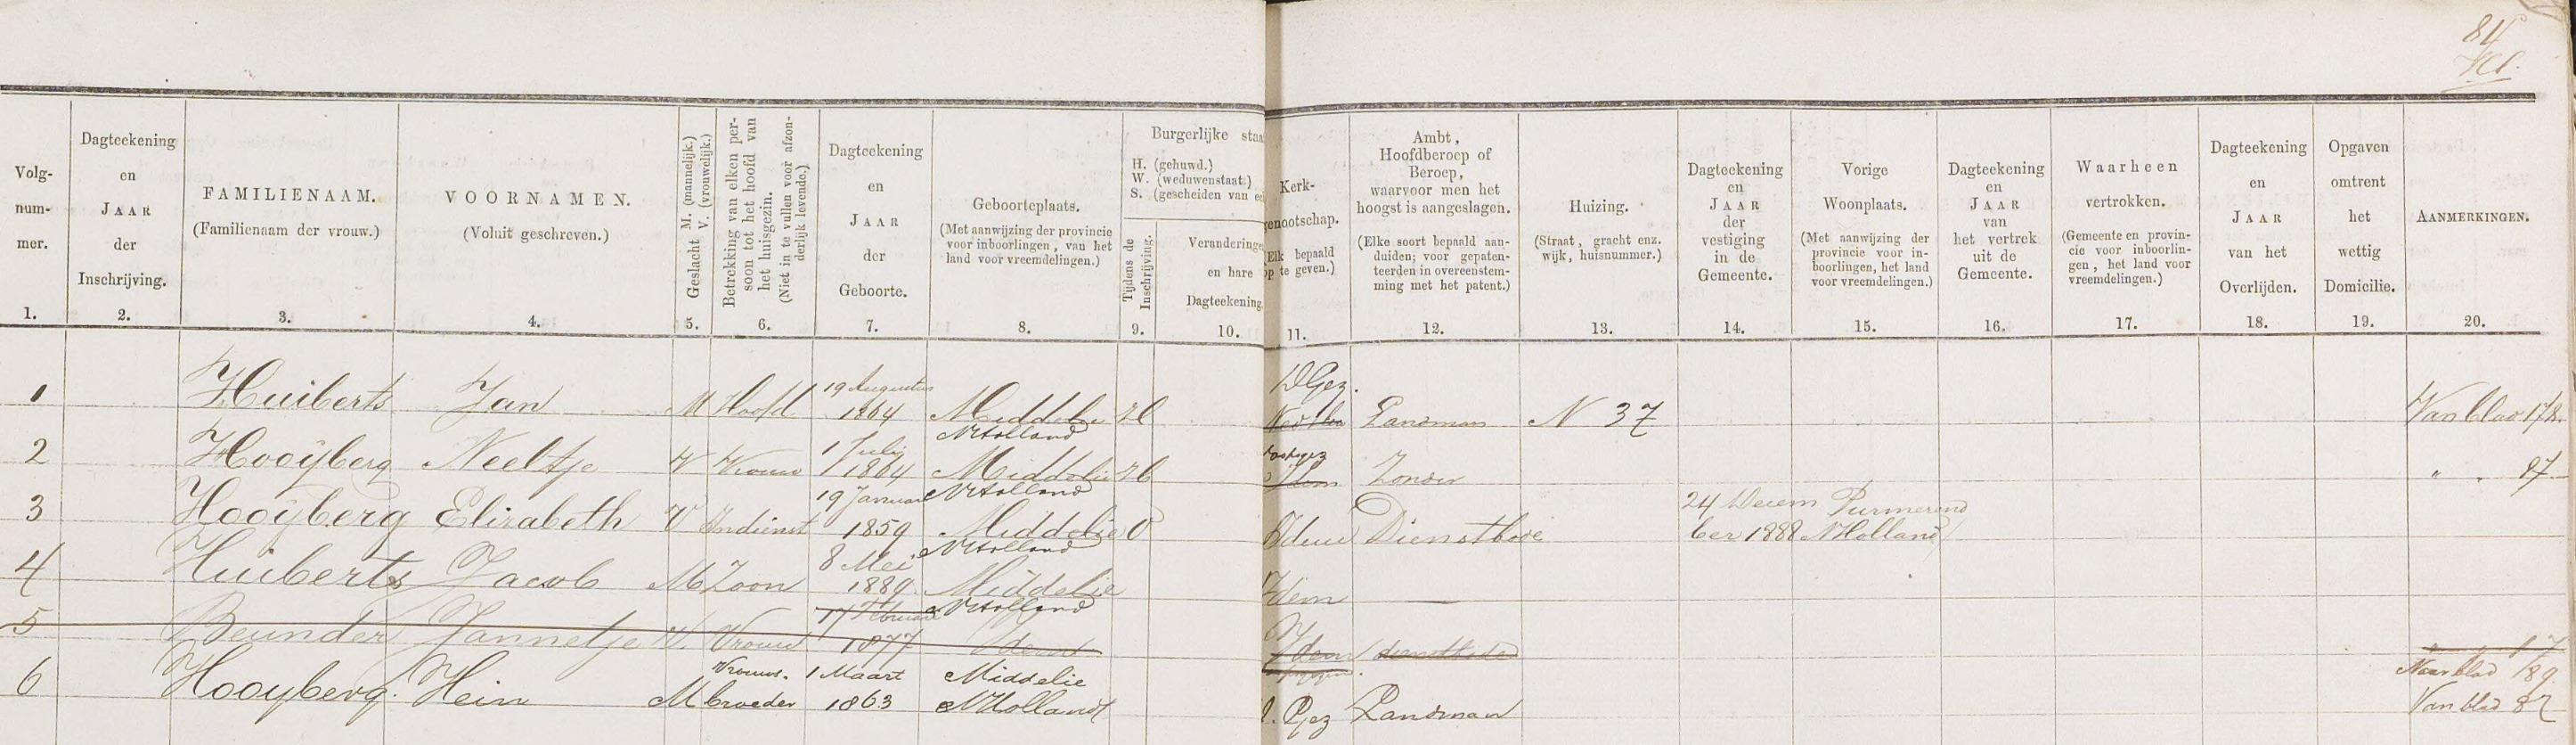 84
Volg-
num-
mer.
1.
Dagteekening
en
JAAR
der
Inschrijving.
2.
FAMILIENAAM.
(Familienaam der vrouw.)
3.
VOORNAMEN.
(Voluit geschreven.)
4.
Geslacht M. (mannelijk.)
V. (vrouwelijk.)
5.
Betrekking van elken per-
soon tot het hoofd van
het huisgezin.
(Niet in te vullen voor afzon-
derlijk levende.)
6.
Dagteekening
en
JAAR
der
Geboorte.
7.
Geboorteplaats.
(Met aanwijzing der provincie
voor inboorlingen, van het
land voor vreemdelingen.)
8.
Burgerlijke staa
H. (gehuwd.)
W. (weduwenstaat.)
S. (gescheiden van ec
Tijdens de
Inschrijving.
9.
Veranderinge
en hare
Dagteekening
10.
Kerk-
genootschap.
(Elk bepaald
op te geven.)
11.
Ambt,
Hoofdberoep of
Beroep,
waarvoor men het
hoogst is aangeslagen.
(Elke soort bepaald aan-
duiden; voor gepaten-
teerden in overeenstem-
ming met het patent.)
12.
Huizing.
(Straat, gracht enz.
wijk, huisnummer.)
13.
Dagteekening
en
JAAR
der
vestiging
in de
Gemeente.
14.
Vorige
Woonplaats.
(Met aanwijzing der
provincie voor in-
boorlingen, het land
voor vreemdelingen.)
15.
Dagteekening
en
JAAR
van
het vertrek
uit de
Gemeente.
16.
Waarheen
vertrokken.
(Gemeente en provin-
cie voor inboorlin-
gen, het land voor
vreemdelingen.)
17.
Dagteekening
en
JAAR
van het
Overlijden.
18.
Opgaven
omtrent
het
wettig
Domicilie.
19.
AANMERKINGEN.
20.
1 Huiberts Jan M Hoofd 19 Augustus 1864 Middelie NHolland H DGez. Landman N 37 Van blad
2 Hooijberg Neeltje V Vrouw 1 Julij 1864 Middelie NHolland H Idem Zonder " " 87
3 Hooijberg Elizabeth V Indienst 19 Januari 1859 Middelie NHolland O Idem Dienstbode 24 Decem ber 1888 Purmerend NHolland
4 Huiberts Jacob M Zoon 8 Mei 1889 Middelie NHolland Idem —
5 Beunder Jannetje V. Vrouw 17 Februari 1877 Idem Idem dienstbode 17 Naar blad 189
6 Hooyberg Hein M Vrouws. broeder 1 Maart 1863 Middelie NHolland D. Gez Landman Van blad 87